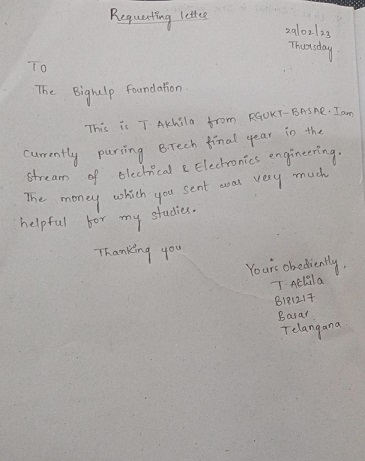 Requesting letter
29/02/23
Thursday
To
The Bighelp Foundation.
This is T Akhila from RGUKT-BASAR. I am
currently pursing B.Tech final year in the
stream of Electrical & Electronics engineering.
The money which you sent was very much
helpful for my studies.
Thanking you
Yours obediently,
T Akhila
B181217
Basar
Telangana